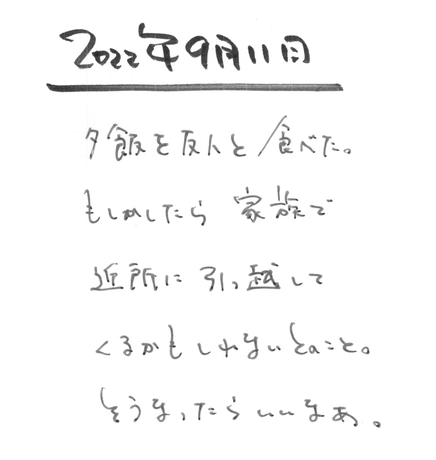 2022年9月11日
夕飯を友人と食べた。
もしかしたら家族で
近所に引っ越して
くるかもしれないとのこと。
そうなったらいいなあ。